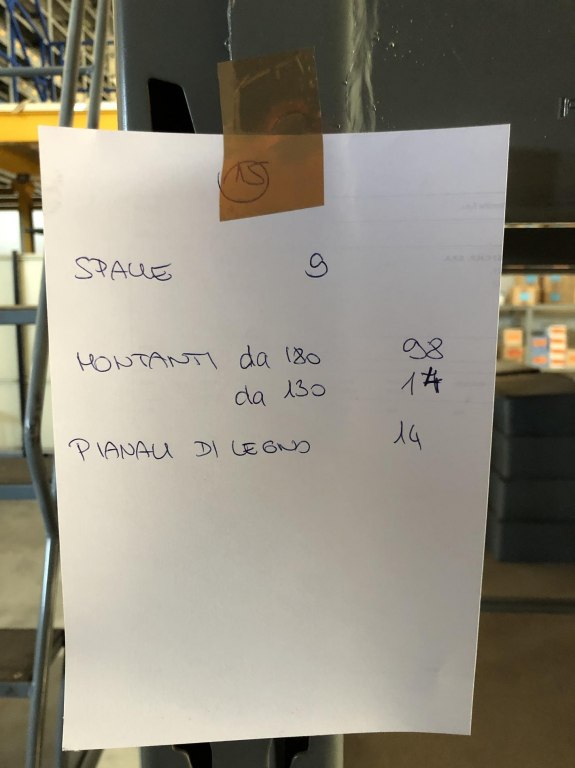 15
SPALLE 9
MONTANTI da 180 98
da 130
PIANALI DI LEGNO 14